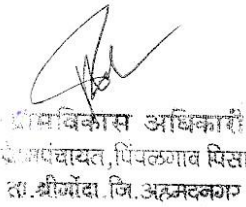 ग्रामविकास अधिकारी
ग्रामपंचायत, पिंपळगाव पिसा
ता. श्रीगोंदा. जि. अहमदनगर